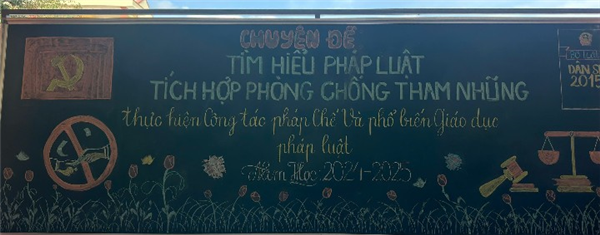 CHUYÊN ĐỀ
TÌM HIỂU PHÁP LUẬT
TÍCH HỢP PHÒNG CHỐNG THAM NHŨNG
thực hiện Công tác pháp Chế Và phổ biến Giáo dục
pháp luật
Năm Học 2024-2025
DÂN S
2015